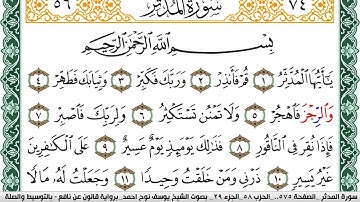 ٧٤ سُورَةُ الْمُدَّثِّرِ ٥٦
بِسْمِ اللَّهِ الرَّحْمَٰنِ الرَّحِيمِ
يَٰٓأَيُّهَا ٱلْمُدَّثِّرُ ١ قُمْ فَأَنذِرْ ٢ وَرَبَّكَ فَكَبِّرْ ٣ وَثِيَابَكَ فَطَهِّرْ ٤
وَٱلرِّجْزَ فَٱهْجُرْ ٥ وَلَا تَمْنُن تَسْتَكْثِرُ ٦ وَلِرَبِّكَ فَٱصْبِرْ ٧
فَإِذَا نُقِرَ فِي ٱلنَّاقُورِ ٨ فَذَٰلِكَ يَوْمَئِذٍ يَوْمٌ عَسِيرٌ ٩ عَلَى ٱلْكَٰفِرِينَ
غَيْرُ يَسِيرٍ ١٠ ذَرْنِي وَمَنْ خَلَقْتُ وَحِيدًا ١١ وَجَعَلْتُ لَهُۥ مَالًا
سورة المدثر_الصفحة ٥٧٥_ الحزب ٥٨_الجزء ٢٩ بصوت الشيخ يوسف نوح احمد_ برواية قالون عن نافع - بالتوسيط والصلة